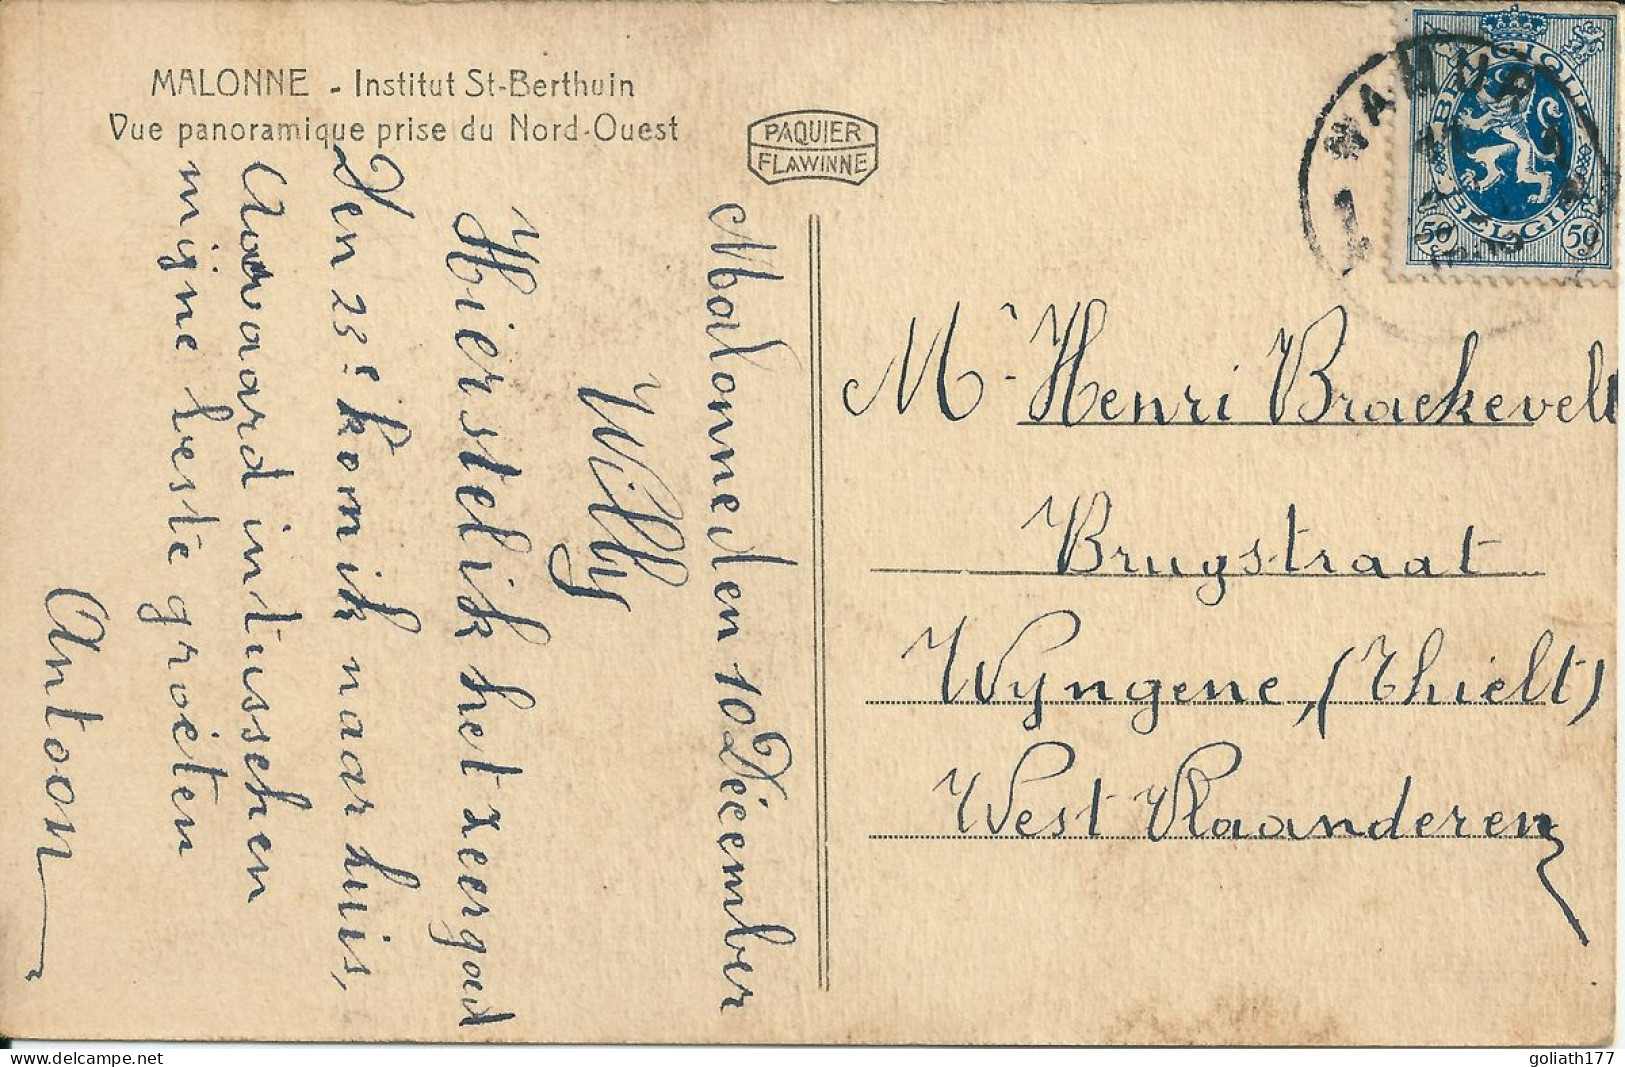 MALONNE - Institut St-Berthuin
Vue panoramique prise du Nord-Ouest
PAQUIER
FLAWINNE
NAMUR
BELGIQUE
BELGIË
50 50
Malonne den 10 Décember
Willy
Hier stelik het zeer goed
Den 23e kom ik naar huis,
Aanvaard intusschen
mijne beste groeten
Antoon
Mr Henri Braekevelt
Brugstraat
Wyngene, (Thielt)
West Vlaanderen
goliath177